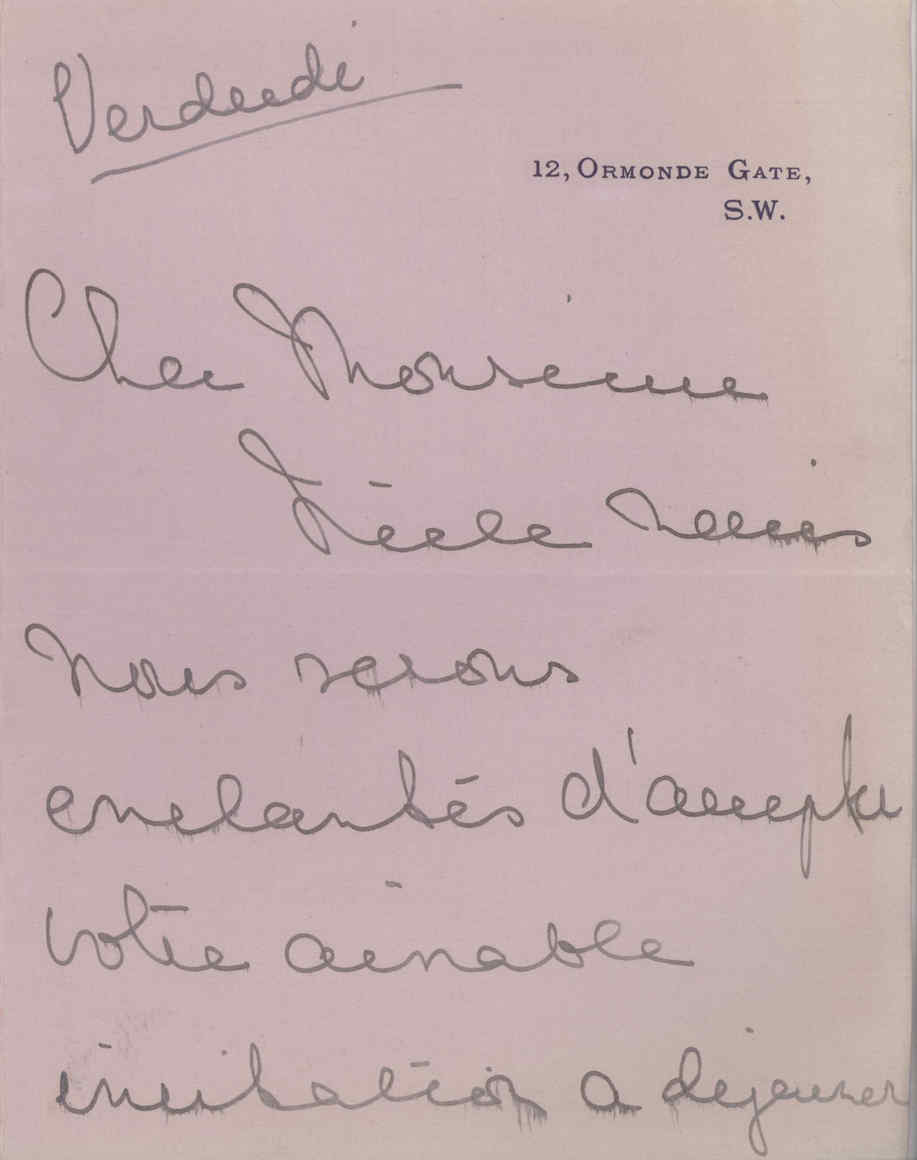 Vendredi
12, ORMONDE GATE,
S.W.
Cher Monsieur
Nous serons
enchantés d'accepter
votre aimable
invitation a dejeuner